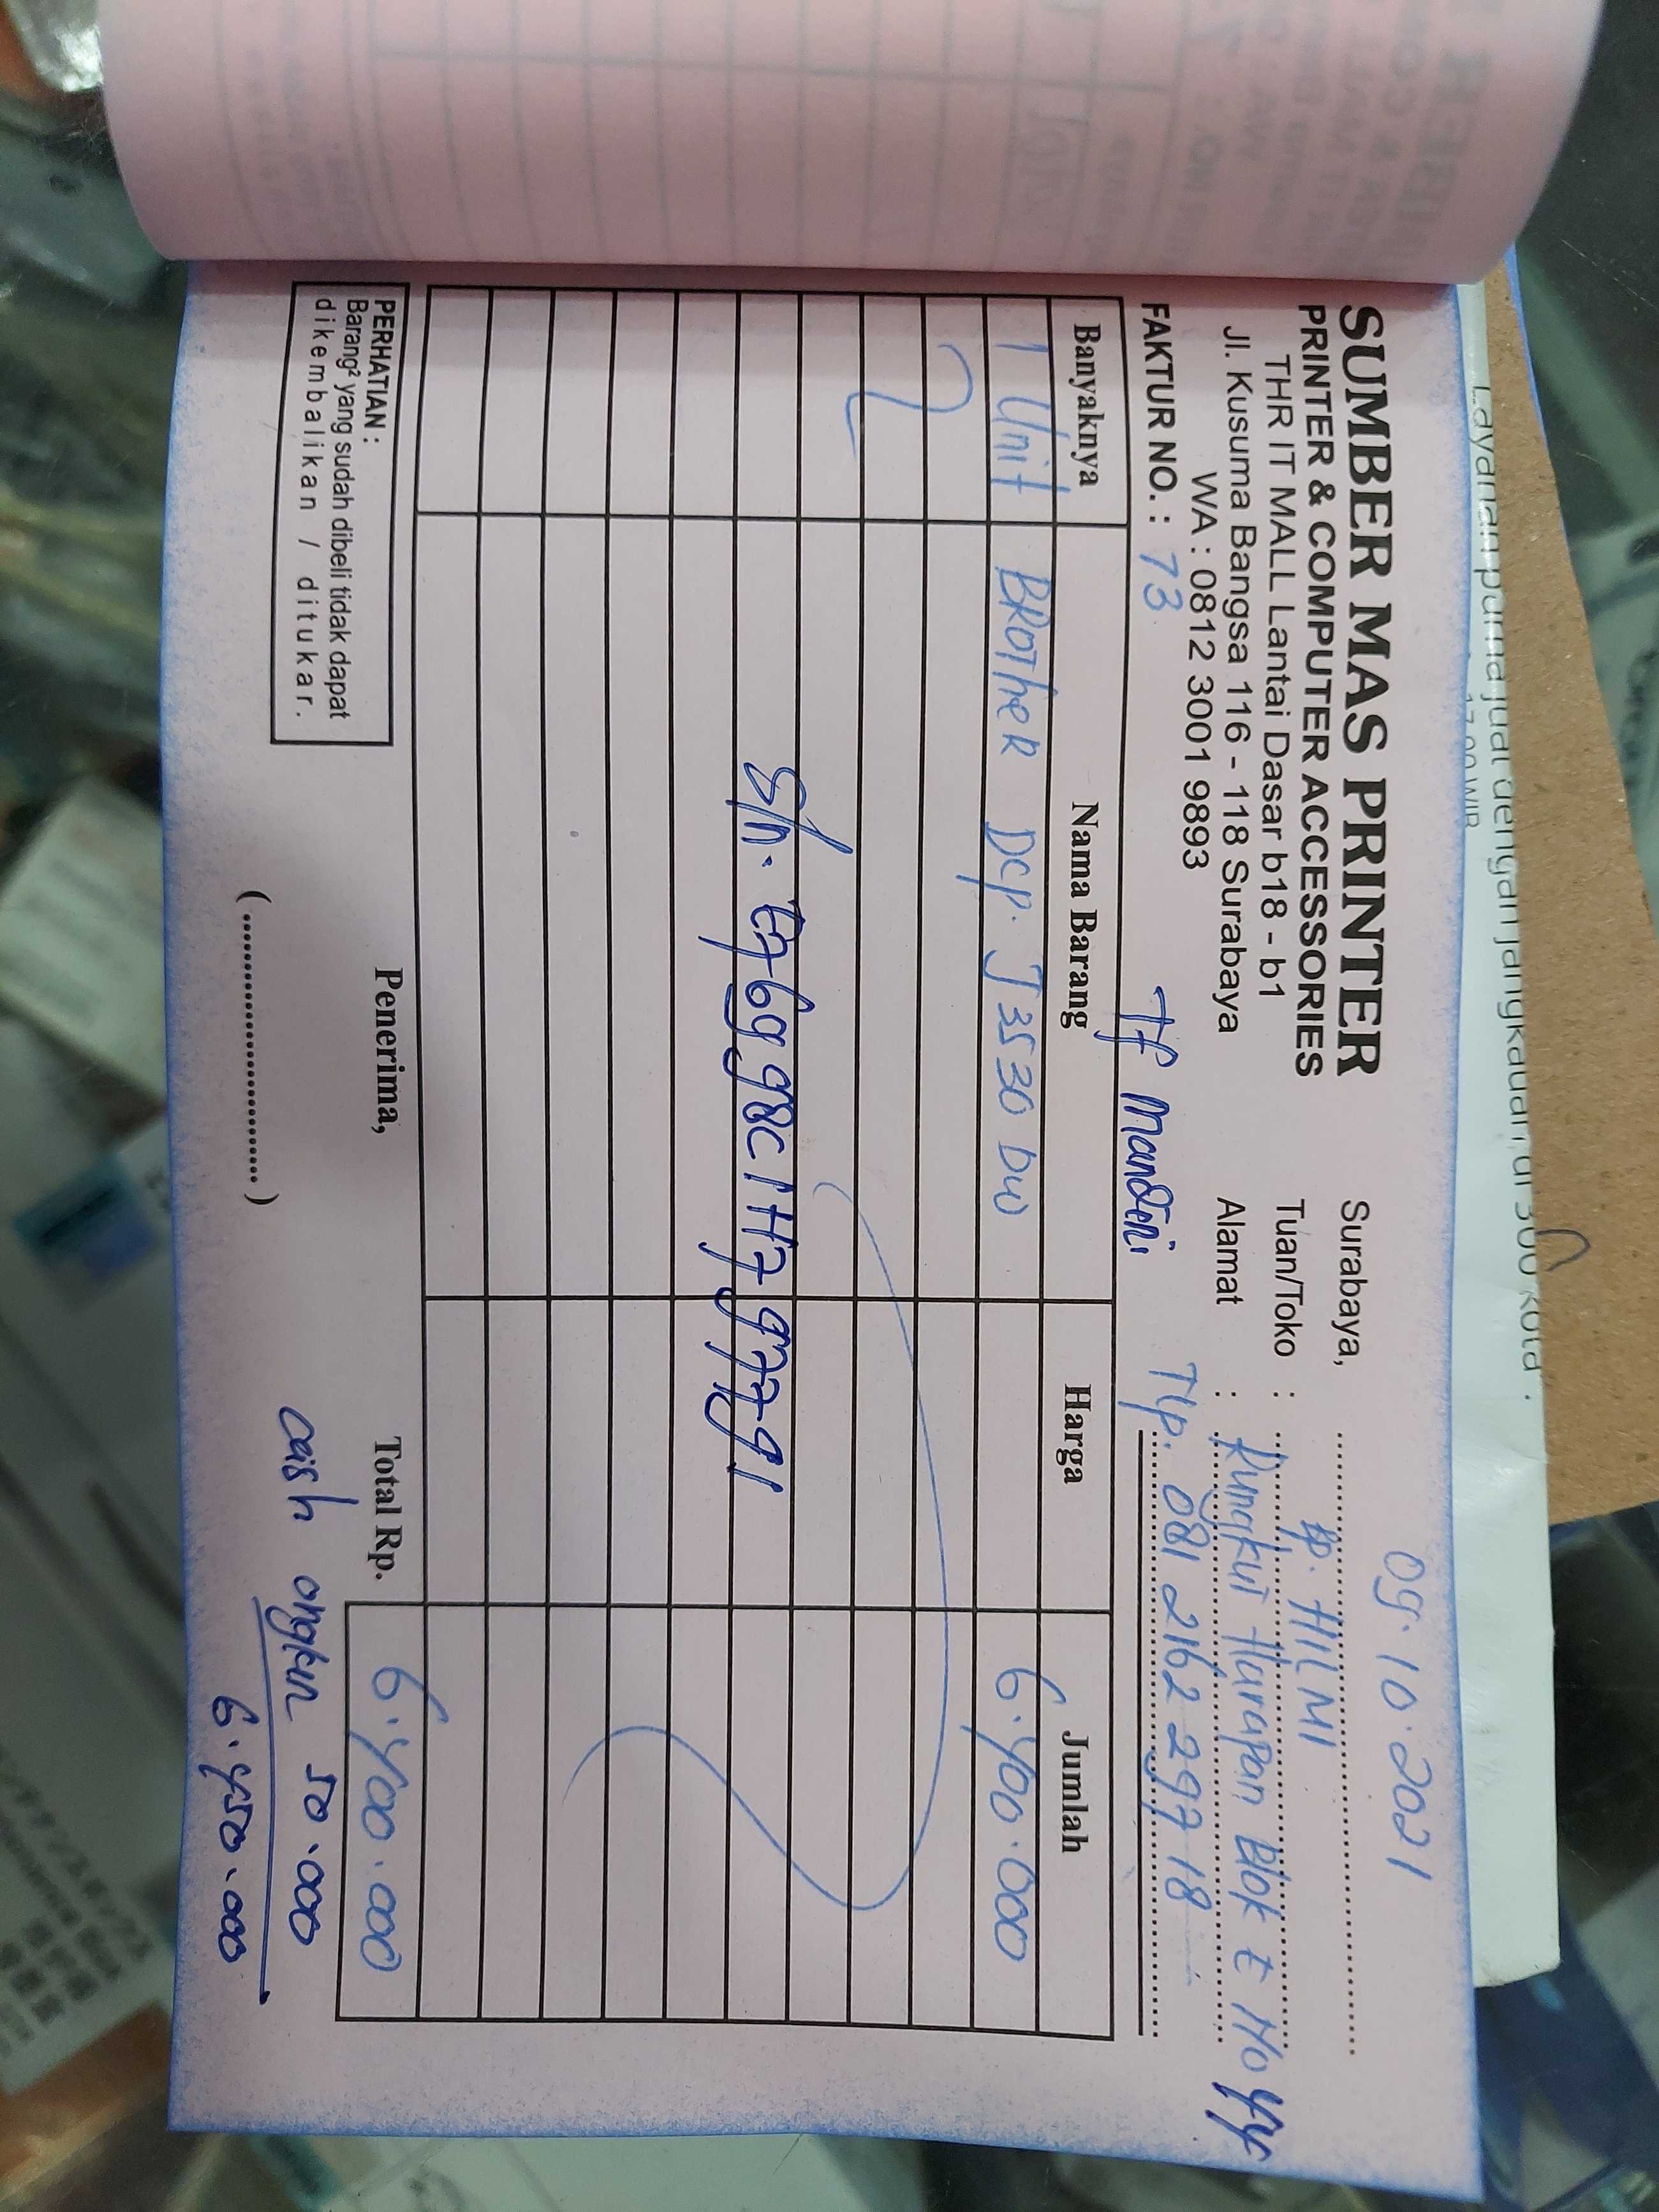 SUMBER MAS PRINTER
PRINTER & COMPUTER ACCESSORIES
THR IT MALL Lantai Dasar b18 - b1
Jl. Kusuma Bangsa 116 - 118 Surabaya
WA : 0812 3001 9893
FAKTUR NO. : 73
Tf Mandiri
Surabaya, 09.10.2021
Tuan/Toko : Bp. HILMI
Alamat : Rungkut Harapan Blok E No
Tlp. 081 2162 297 18
Banyaknya Nama Barang Harga Jumlah
1 Unit BROTHER DCP. J3530 DW 6.400.000
S/n.
PERHATIAN :
Barang² yang sudah dibeli tidak dapat
dikembalikan / ditukar.
Penerima,
(........................)
Total Rp. 6.400.000
cash ongkir 50.000
6.450.000
Layanan purna jual dengan jangkauan di 300 kota .
17.00 WIB